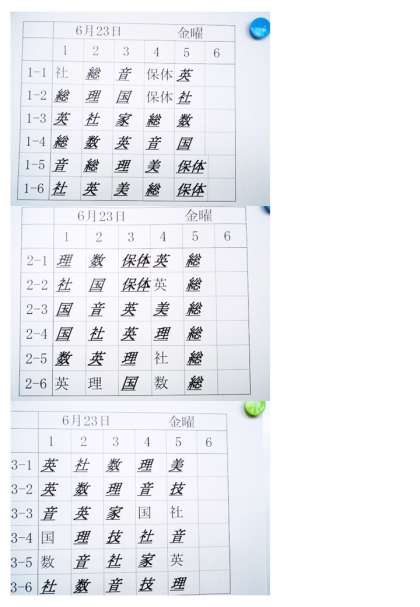 6月23日 金曜
1 2 3 4 5 6
1-1 社 総 音 保体 英
1-2 総 理 国 保体 社
1-3 英 社 家 総 数
1-4 総 数 英 音 国
1-5 音 総 理 美 保体
1-6 社 英 美 総 保体
6月23日 金曜
1 2 3 4 5 6
2-1 理 数 保体 英 総
2-2 社 国 保体 英 総
2-3 国 音 英 美 総
2-4 国 社 英 理 総
2-5 数 英 理 社 総
2-6 英 理 国 数 総
6月23日 金曜
1 2 3 4 5 6
3-1 英 社 数 理 美
3-2 英 数 理 音 技
3-3 音 英 家 国 社
3-4 国 理 技 社 音
3-5 数 音 社 家 英
3-6 社 数 音 技 理